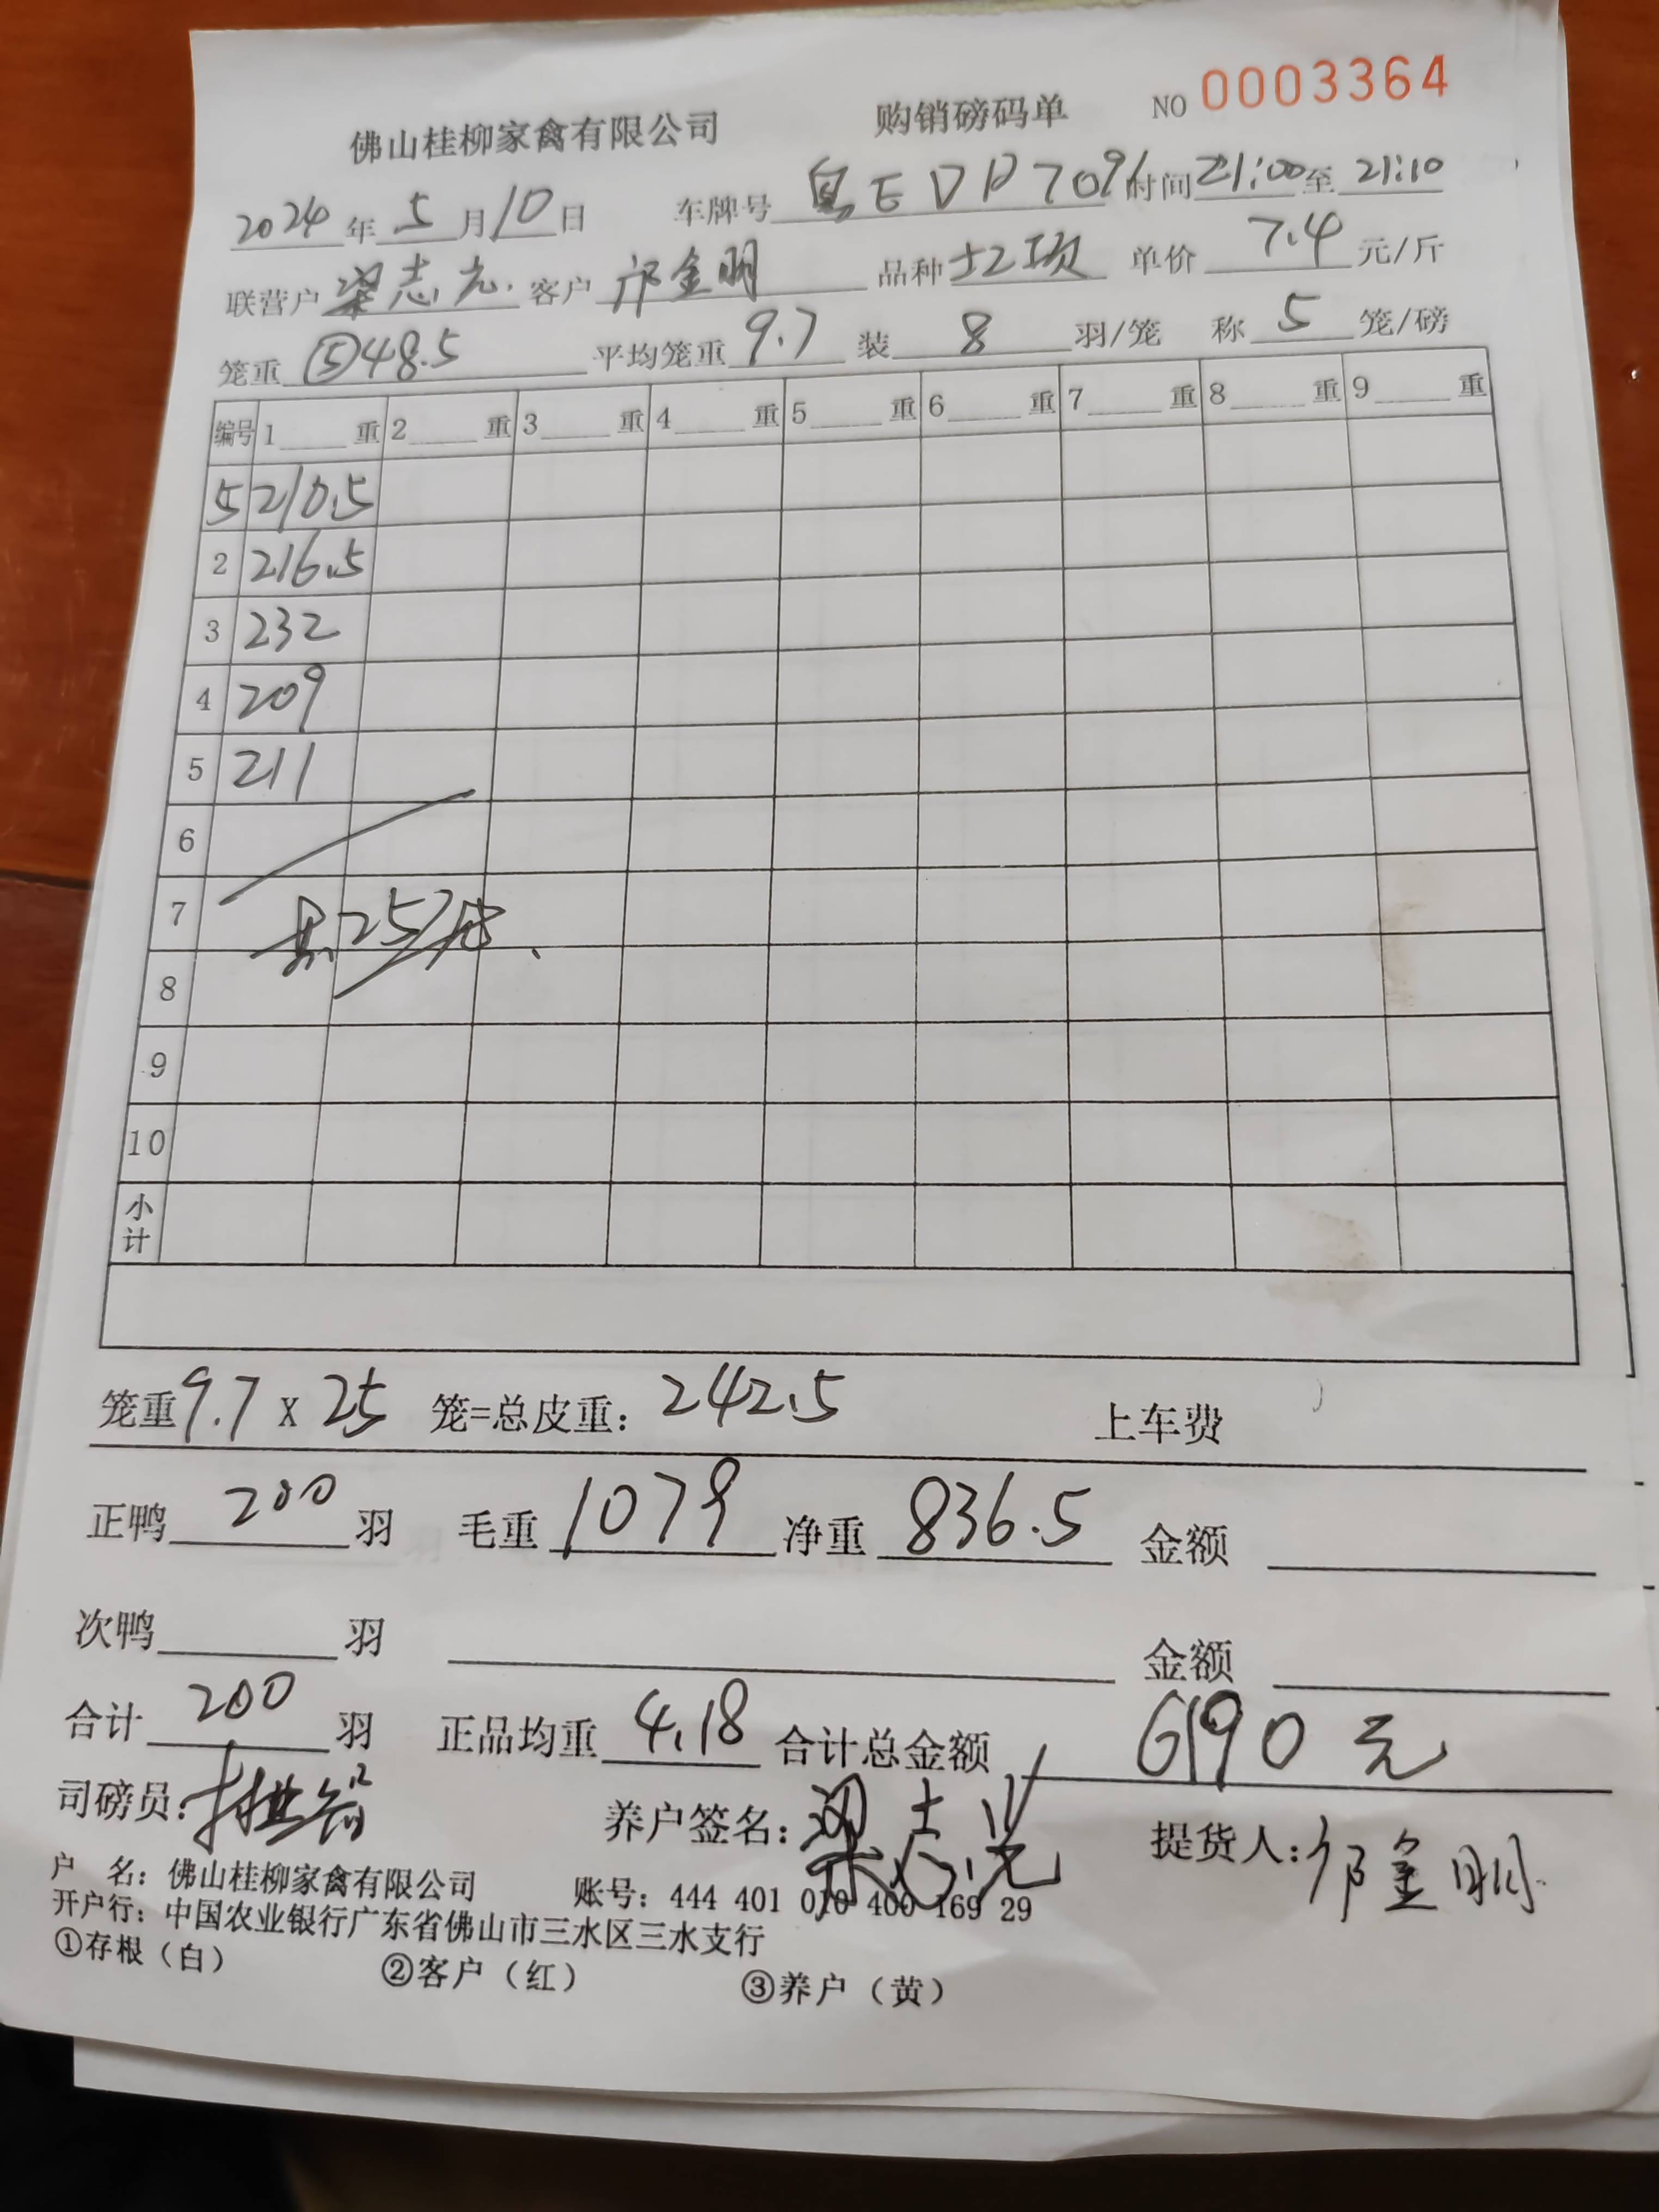 佛山桂柳家禽有限公司 购销磅码单 NO 0003364
2024 年 5 月 10 日 车牌号 EDP7091 时间 21:00 至 21:10
联营户 梁志光 客户 邝金明 品种 土2项 单价 7.4 元/斤
笼重 ⑤48.5 平均笼重 9.7 装 8 羽/笼 称 5 笼/磅
编号 1 重 2 重 3 重 4 重 5 重 6 重 7 重 8 重 9 重
5 210.5
2 216.5
3 232
4 209
5 211
6
7 共25
8
9
10
小计
笼重 9.7 X 25 笼=总皮重: 242.5 上车费
正鸭 200 羽 毛重 1079 净重 836.5 金额
次鸭 羽 金额
合计 200 羽 正品均重 4.18 合计总金额 6190 元
司磅员: 养户签名: 梁志光 提货人: 邝金明
户 名: 佛山桂柳家禽有限公司 账号: 444 401 010 400 169 29
开户行: 中国农业银行广东省佛山市三水区三水支行
①存根（白） ②客户（红） ③养户（黄）